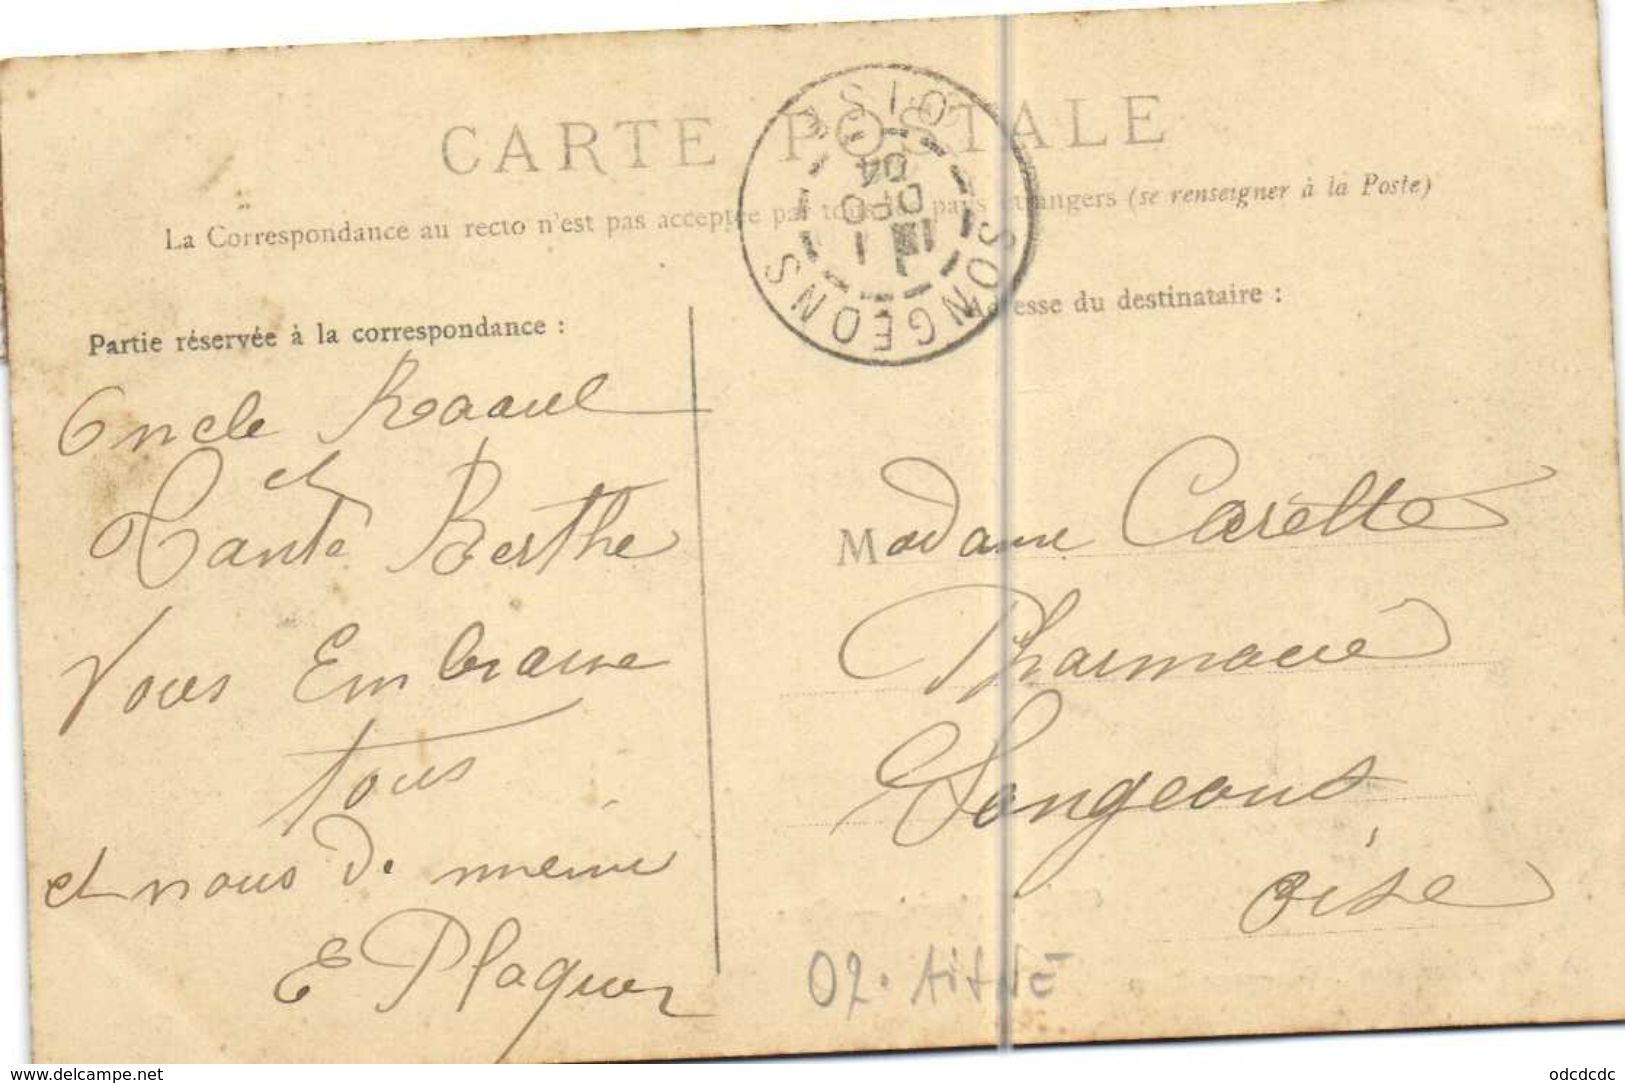 CARTE POSTALE
La Correspondance au recto n'est pas acceptée par tous les pays étrangers (se renseigner à la Poste)
SONGEONS
OISE
04
Partie réservée à la correspondance :
Adresse du destinataire :
Oncle Raoul
et
Tante Berthe
Vous Embrasse
tous
et nous de meme
E Plaquer
Madame Carette
Pharmacie
Songeons
Oise
02. AISNE
www.delcampe.net
odcdcdc